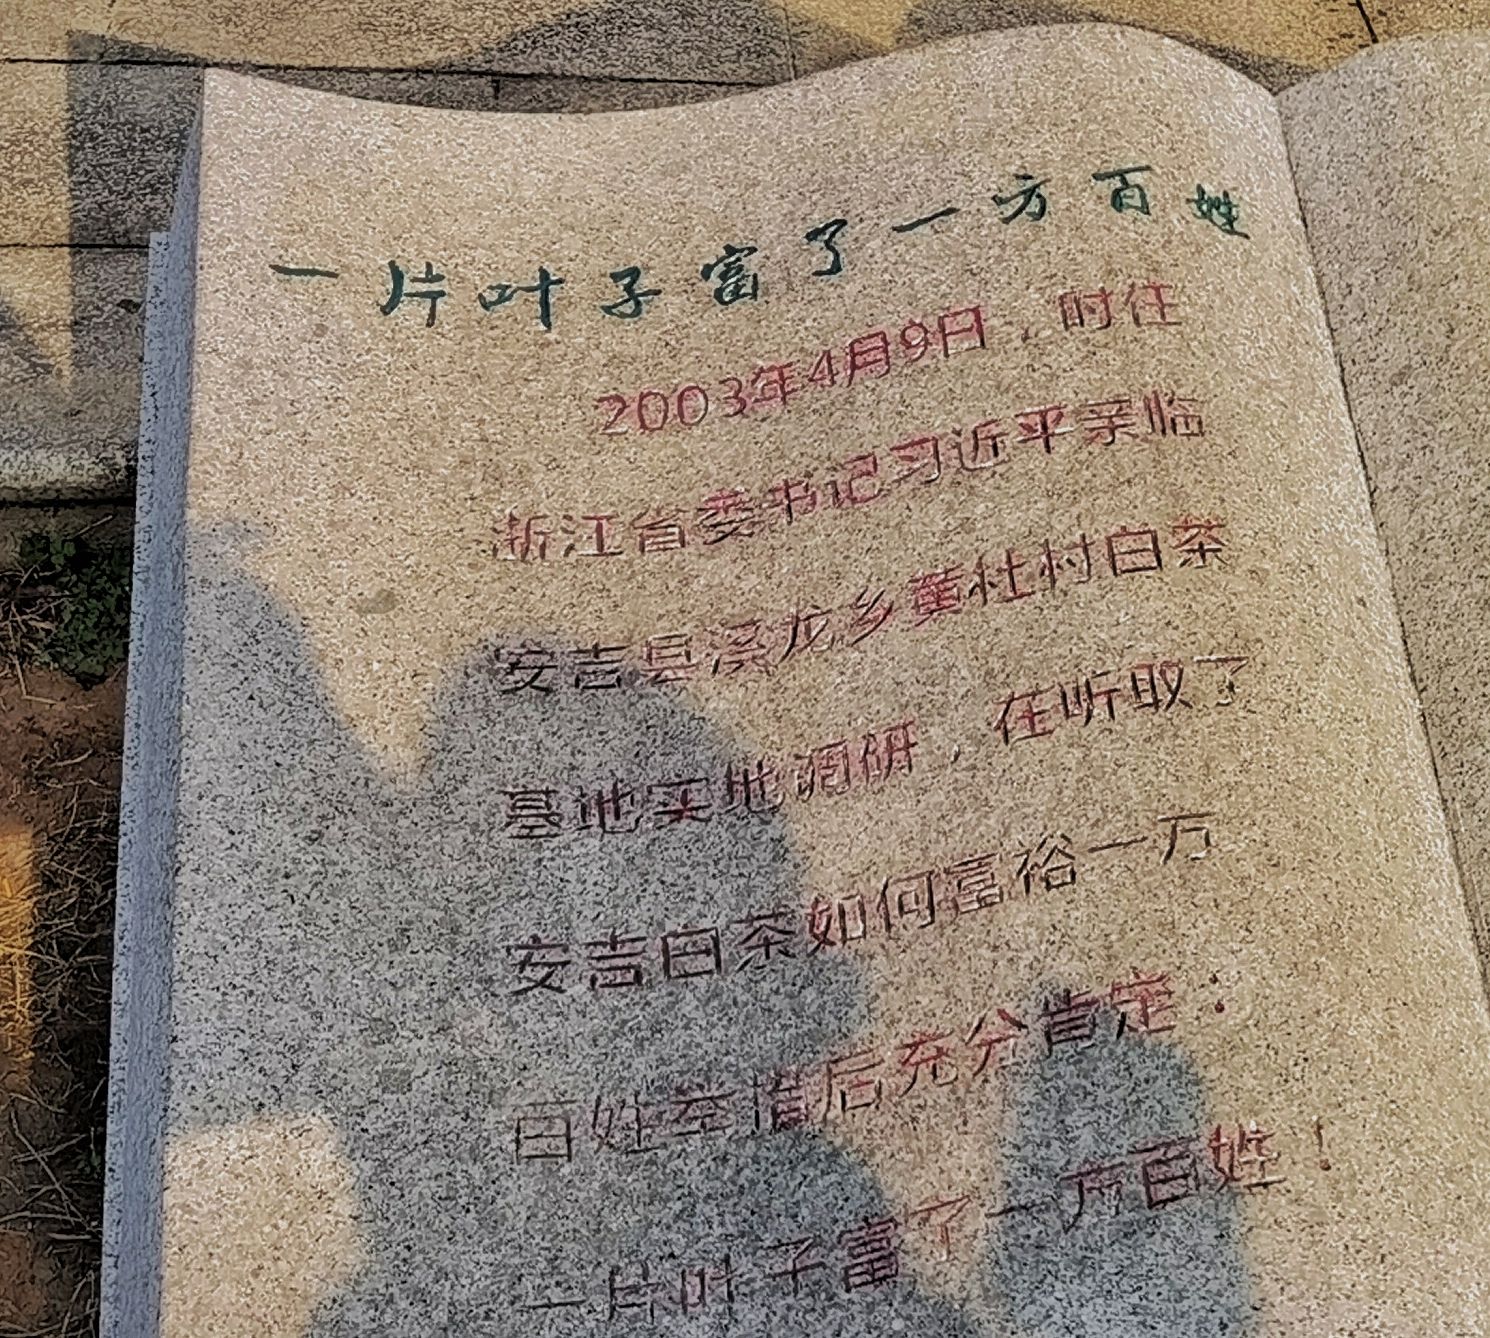 一片叶子富了一方百姓
2003年4月9日，时任
浙江省委书记习近平亲临
安吉县溪龙乡黄杜村白茶
基地实地调研，在听取了
安吉白茶如何富裕一方
百姓举措后充分肯定：
一片叶子富了一方百姓！